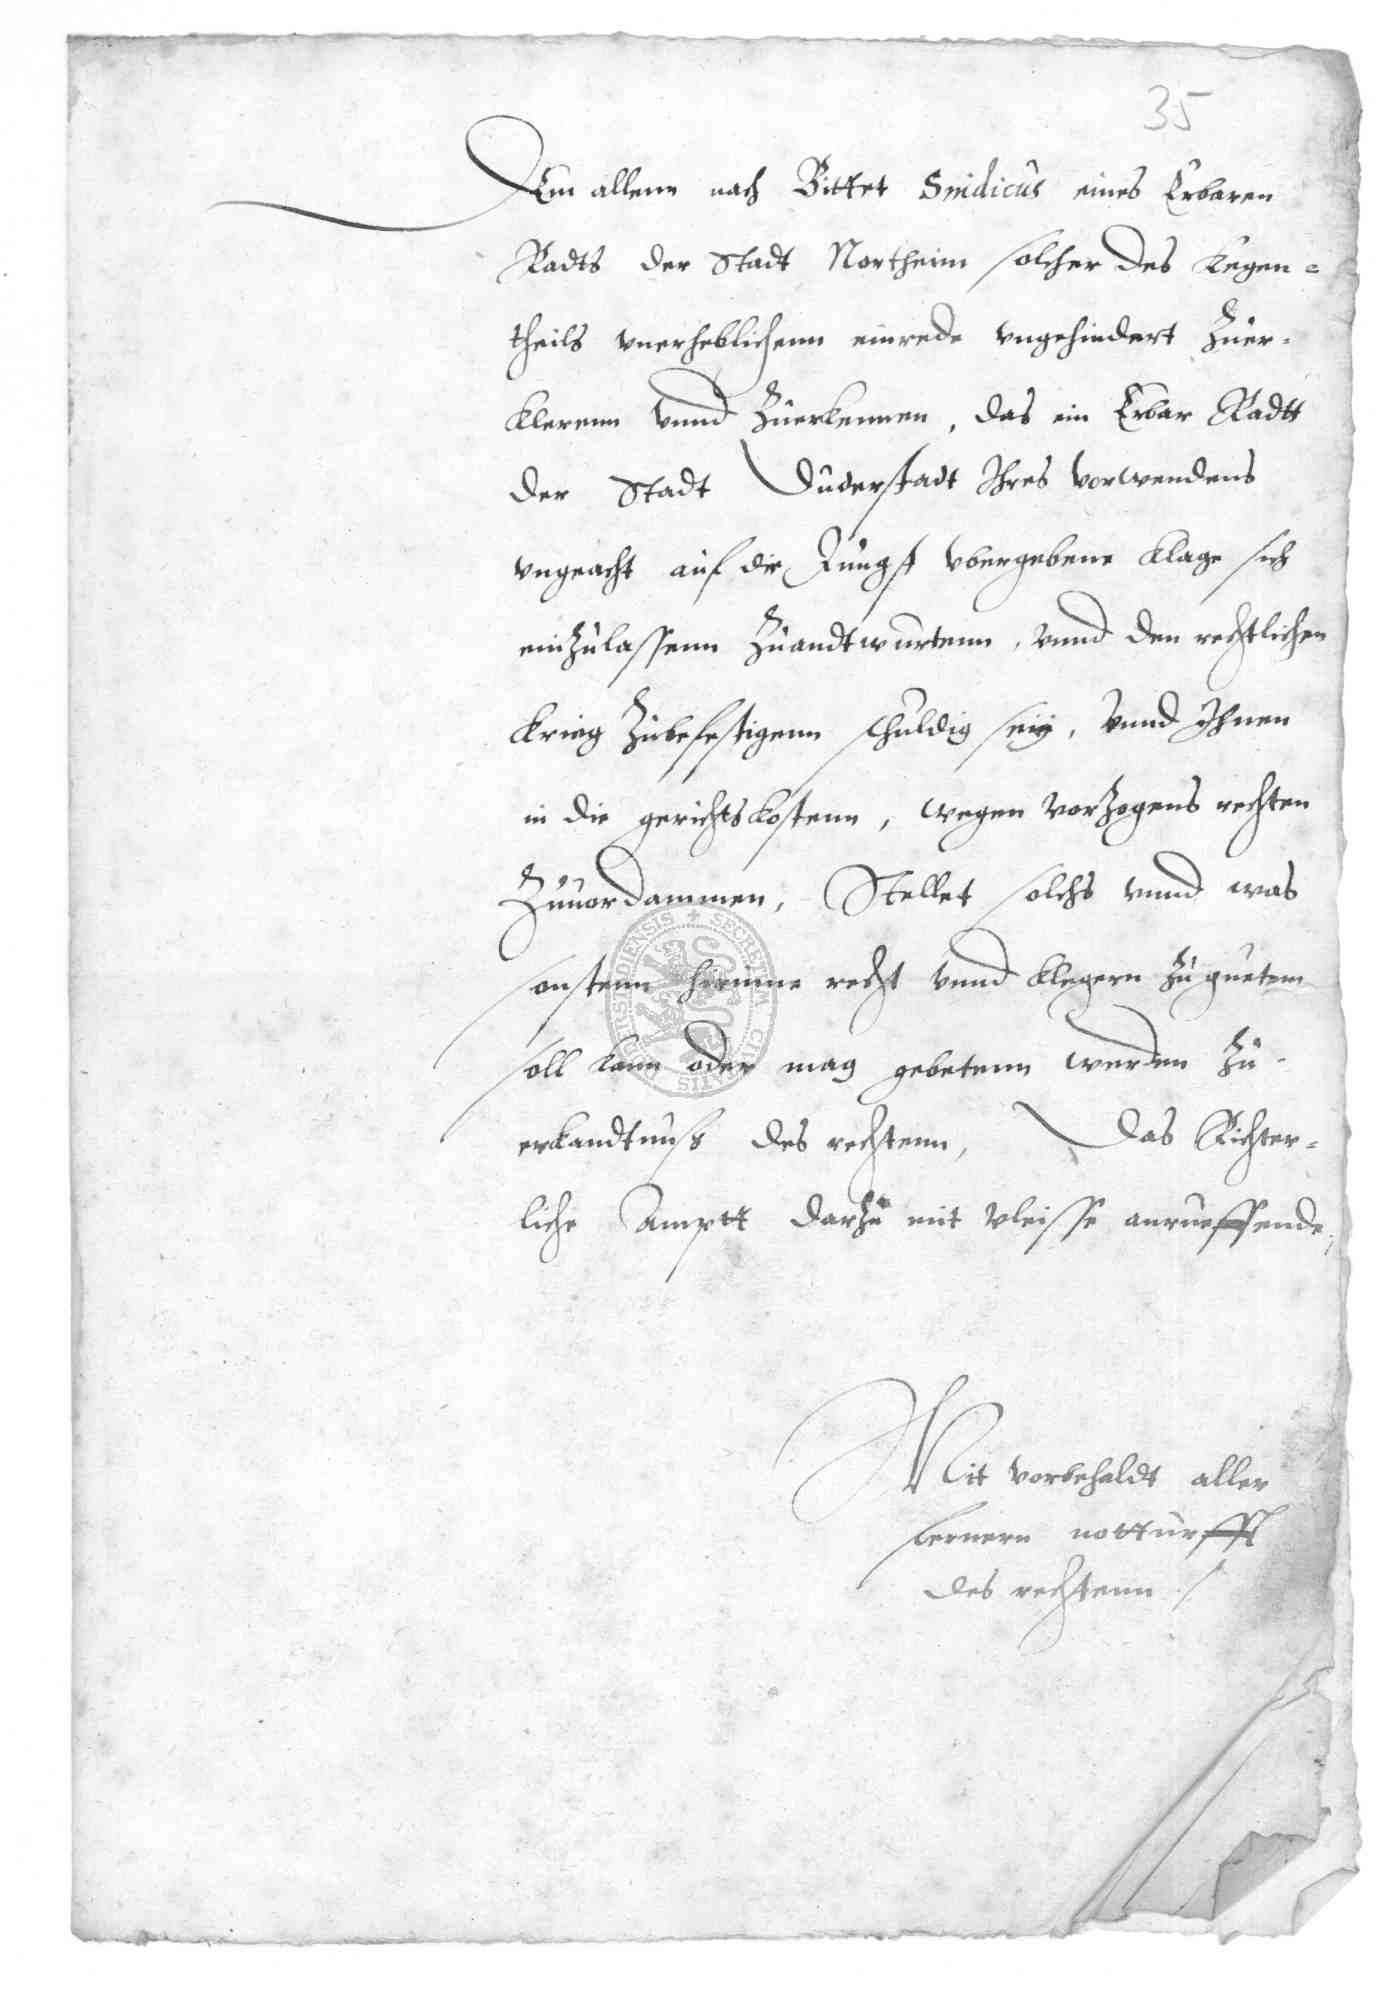 35
Dem allenn nach Bittet Sindicus eines Erbaren
Radts der Stadt Northeim solcher des kegen=
theils vnerheblichenn einrede vngehindert Zuer-
klerenn vnnd Zuerkennen, das ein Erbar Radtt
der Stadt Duderstadt Ihres vorwendens
vngeacht auf die Jungst vbergebene klage sich
einzulassenn Zuandtwurtenn, vnnd den rechtlichen
krieg Zubefestigenn schuldig seÿ, vnnd Ihnen
in die gerichtskostenn, wegen vorzogens rechten
Zuuordammen, Stellet solchs vnnd was
sonstenn hirinne recht vnnd klegern zu guetem
soll kann oder mag gebetenn werden Zu-
erkandtnuß des rechtenn, Das Richter=
liche Amptt darzu mit vleisse anrueffende,
Mit vorbehaldt aller
fernern notturfft
des rechtenn /
SECRETUM CIVITATIS DUDERSTADIENSIS